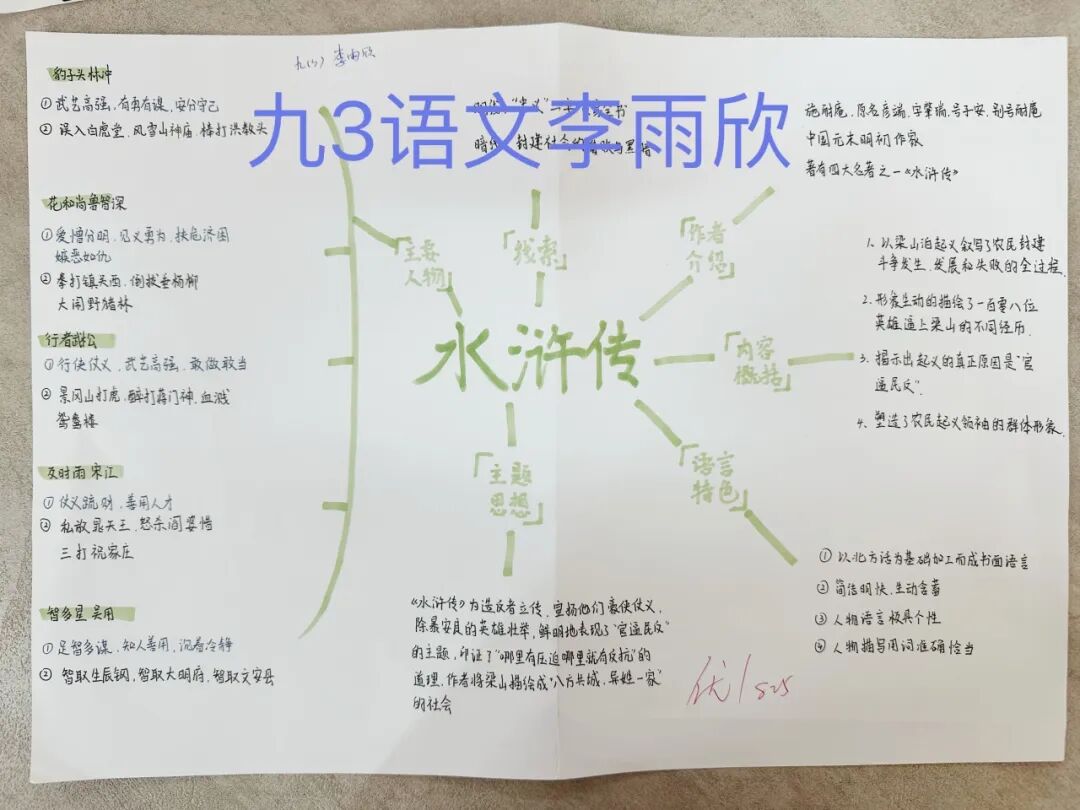 九(3) 李雨欣
九3语文李雨欣
豹子头林冲
①武艺高强,有勇有谋,安分守己
②误入白虎堂,风雪山神庙,棒打洪教头
花和尚鲁智深
①爱憎分明,见义勇为,扶危济困
嫉恶如仇
②拳打镇关西,倒拔垂杨柳
大闹野猪林
行者武松
①行侠仗义,武艺高强,敢做敢当
②景冈山打虎,醉打蒋门神,血溅
鸳鸯楼
及时雨宋江
①仗义疏财,善用人才
②私放晁天王,怒杀阎婆惜
三打祝家庄
智多星吴用
①足智多谋,知人善用,沉着冷静
②智取生辰钢,智取大明府,智取文安县
「主要
人物」
「线索」
「作者
介绍」
水浒传
「内容
概括」
「主题
思想」
「语言
特色」
施耐庵,原名彦端,字肇瑞,号子安,别名耐庵
中国元末明初作家
著有四大名著之一《水浒传》
1. 以梁山泊起义叙写了农民封建
斗争发生、发展和失败的全过程.
2. 形象生动的描绘了一百零八位
英雄逼上梁山的不同经历.
3. 揭示出起义的真正原因是"官
逼民反".
4. 塑造了农民起义领袖的群体形象.
①以北方话为基础加工而成书面语言
②简洁明快,生动含蓄
③人物语言极具个性
④人物描写用词准确恰当
《水浒传》为造反者立传,宣扬他们豪侠仗义,
除暴安良的英雄壮举,鲜明地表现了"官逼民反"
的主题,印证了"哪里有压迫哪里就有反抗"的
道理,作者将梁山描绘成"八方共域,异姓一家"
的社会
优